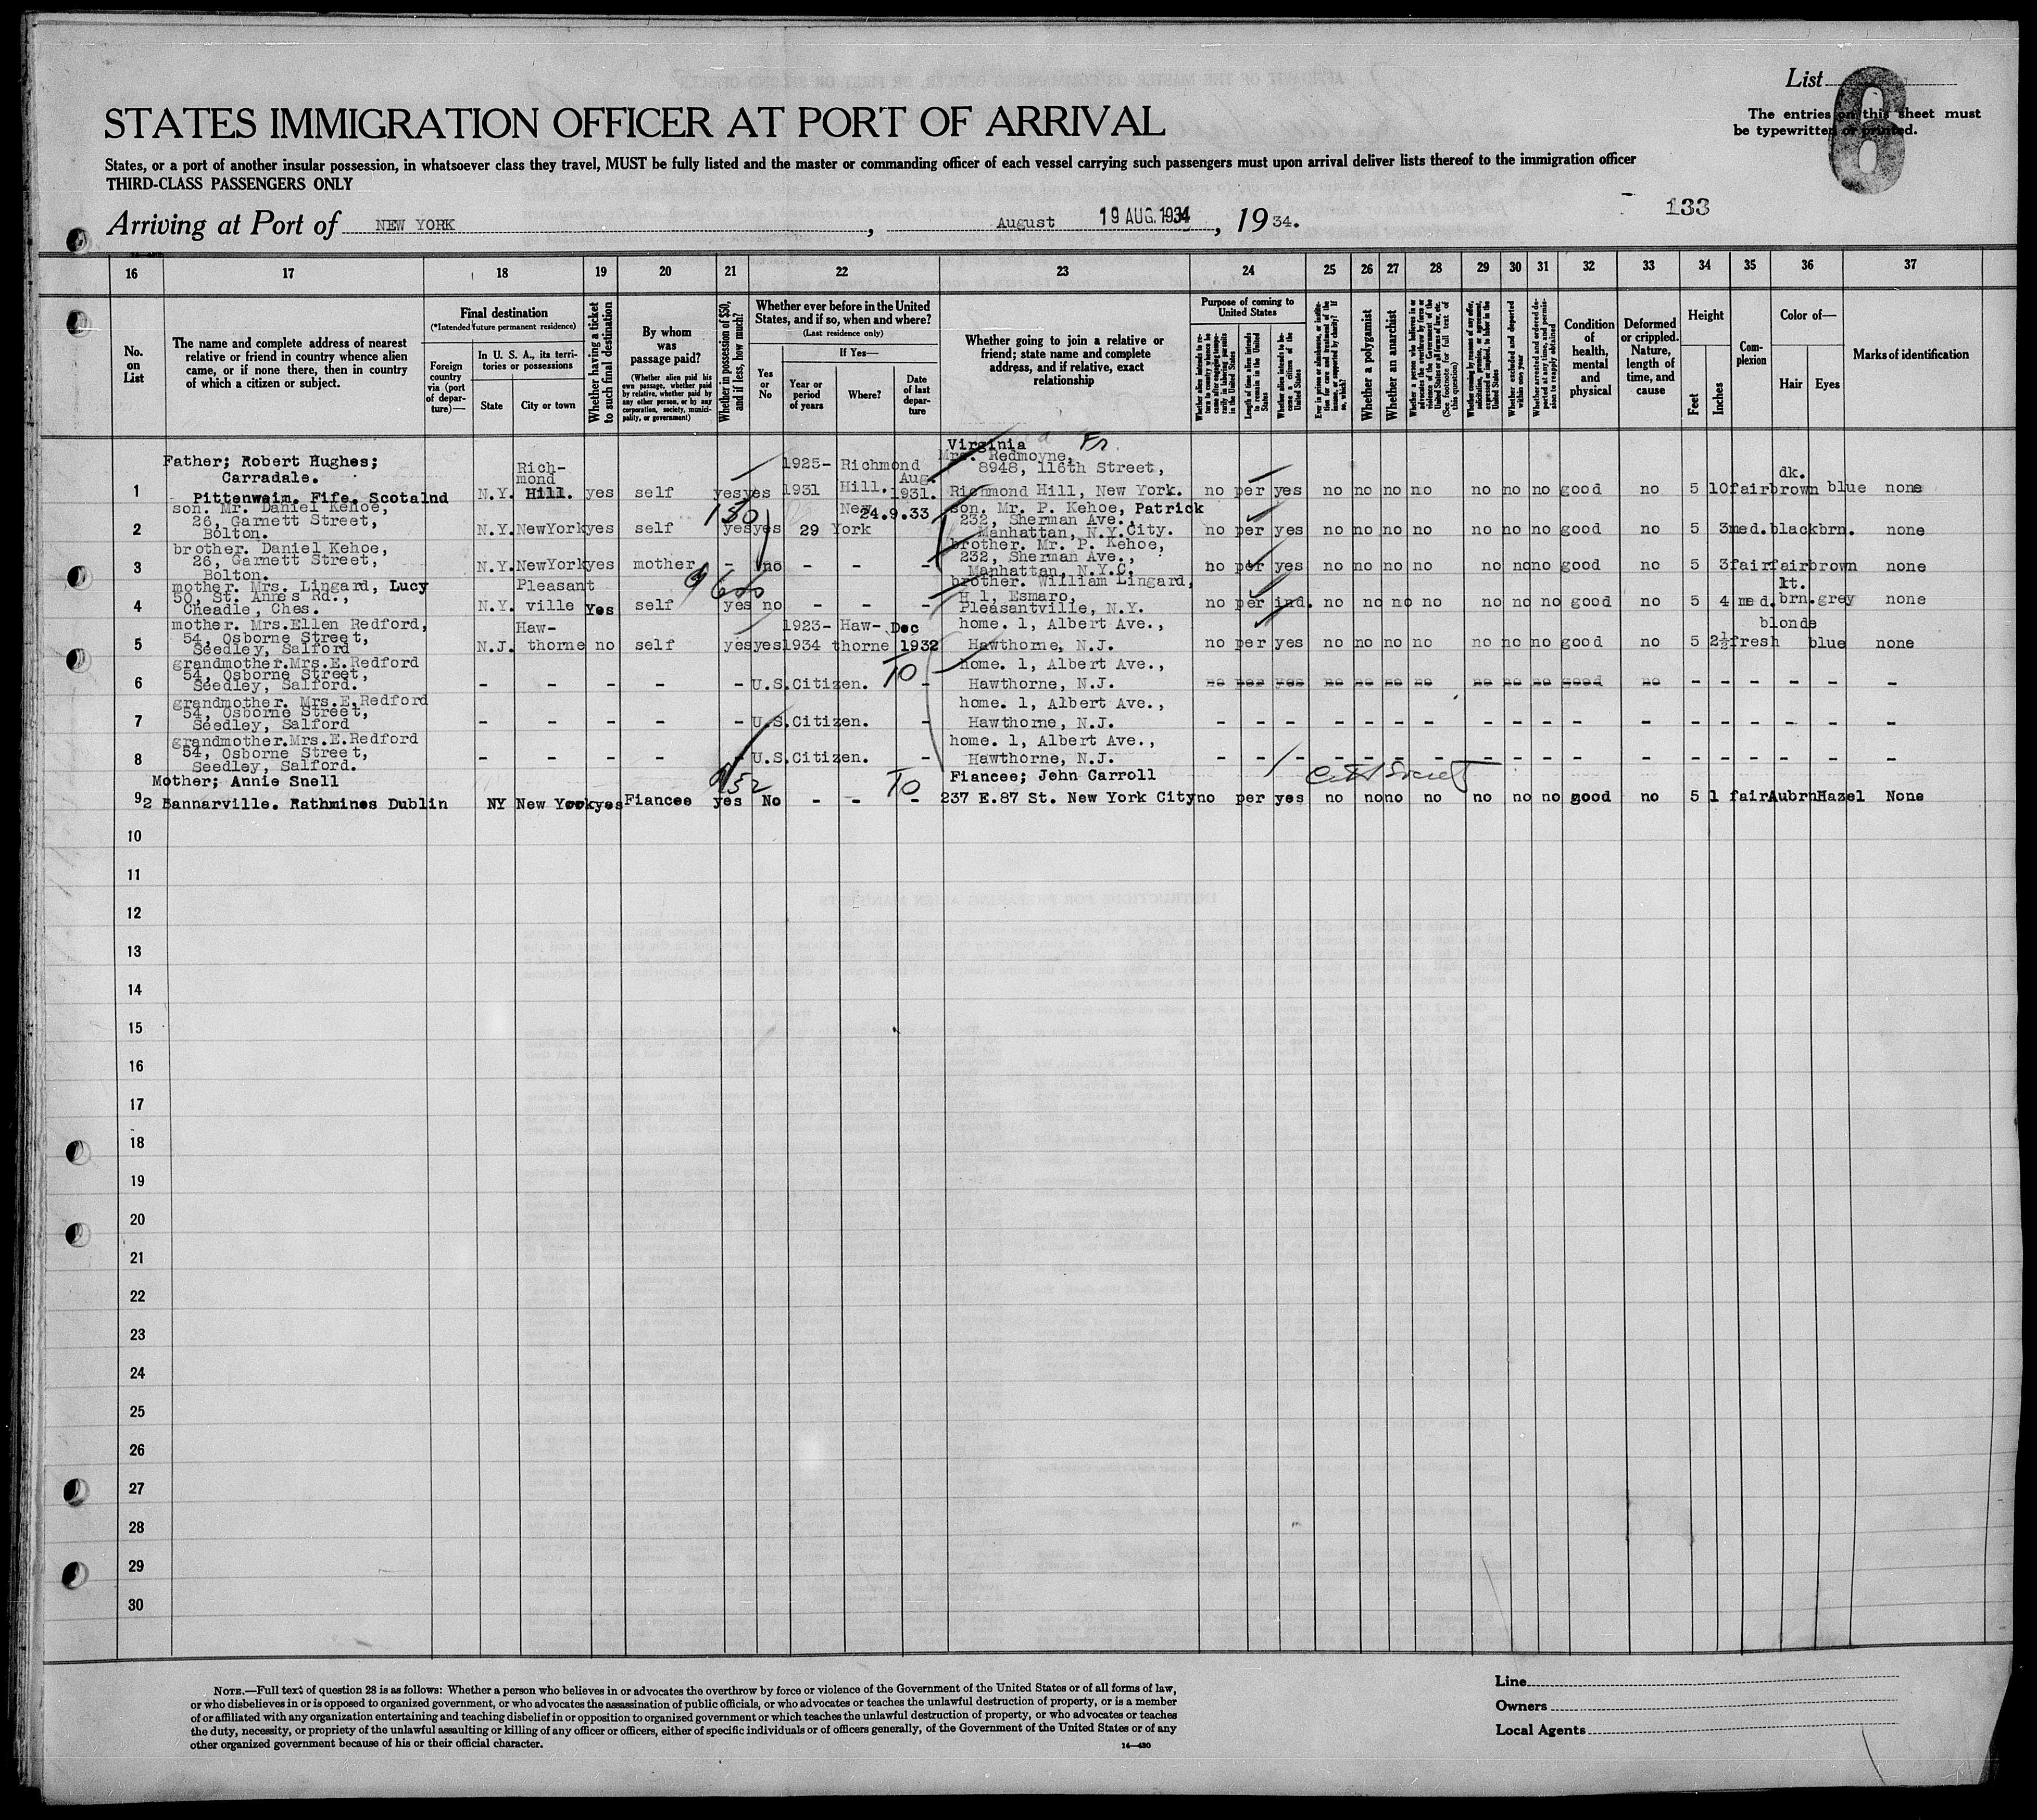 List
6
The entries on this sheet must
be typewritten or printed.
STATES IMMIGRATION OFFICER AT PORT OF ARRIVAL
States, or a port of another insular possession, in whatsoever class they travel, MUST be fully listed and the master or commanding officer of each vessel carrying such passengers must upon arrival deliver lists thereof to the immigration officer
THIRD-CLASS PASSENGERS ONLY
133
Arriving at Port of NEW YORK, August 19 AUG.1934, 1934.
16 17 18 19 20 21 22 23 24 25 26 27 28 29 30 31 32 33 34 35 36 37
No.
on
List
The name and complete address of nearest
relative or friend in country whence alien
came, or if none there, then in country
of which a citizen or subject.
Final destination
(*Intended future permanent residence)
Foreign
country
via (port
of depar-
ture)—
In U. S. A., its terri-
tories or possessions
State
City or town
Whether having a ticket
to such final destination
By whom
was
passage paid?
(Whether alien paid his
own passage, whether paid
by relative, whether paid by
any other person, or by any
corporation, society, munici-
pality, or government)
Whether in possession of $50,
and if less, how much?
Whether ever before in the United
States, and if so, when and where?
(Last residence only)
Yes
or
No
If Yes—
Year or
period
of years
Where?
Date
of last
depar-
ture
Whether going to join a relative or
friend; state name and complete
address, and if relative, exact
relationship
Purpose of coming to
United States
Length of time alien intends
to remain in the United
States
Whether alien intends to be-
come a citizen of the
United States
Whether a polygamist
Whether an anarchist
Whether excluded and deported
within one year
Condition
of
health,
mental
and
physical
Deformed
or crippled.
Nature,
length of
time, and
cause
Height
Feet
Inches
Com-
plexion
Color of—
Hair
Eyes
Marks of identification
Father; Robert Hughes;
Carradale.
Pittenweim. Fife. Scotalnd
1 N.Y. Rich-
mond
Hill. yes self yes yes 1925-
1931 Richmond
Hill. Aug.
1931.
Virginia
Mrs. Redmoyne,
8948, 116th Street,
Richmond Hill, New York. no per yes no no no no no no no good no 5 10 fair dk.
brown blue none
son. Mr. Daniel Kehoe,
26, Garnett Street,
Bolton.
2 N.Y. NewYork yes self 130 yes yes 29 New
York 24.9.33
son. Mr. P. Kehoe, Patrick
232, Sherman Ave.,
Manhattan, N.Y.City. no per yes no no no no no no no good no 5 3 med. black brn. none
brother. Daniel Kehoe,
26, Garnett Street,
Bolton.
3 N.Y. NewYork yes mother - no - - -
brother. Mr. P. Kehoe,
232, Sherman Ave.,
Manhattan, N.Y.C, no per yes no no no no no no no good no 5 3 fair fair brown none
mother. Mrs. Lingard, Lucy
50, St. Annes Rd.,
Cheadle, Ches.
4 N.Y. Pleasant
ville Yes self 600 yes no - - -
brother. William Lingard,
H 1, Esmaro,
Pleasantville, N.Y. no per ind. no no no no no no no good no 5 4 med. lt.
brn. grey none
mother. Mrs.Ellen Redford,
54, Osborne Street,
Seedley, Salford
5 N.J. Haw-
thorne no self yes yes 1923-
1934 Haw-
thorne Dec
1932
home. 1, Albert Ave.,
Hawthorne, N.J. no per yes no no no no no no no good no 5 2½ fresh blonde blue none
grandmother.Mrs.E.Redford
54, Osborne Street,
Seedley, Salford.
6 - - - - - U.S.Citizen. TO -
home. 1, Albert Ave.,
Hawthorne, N.J. no per yes no no no no no no no good no - - - - - -
grandmother. Mrs.E.Redford
54, Osborne Street,
Seedley, Salford
7 - - - - - U.S.Citizen. -
home. 1, Albert Ave.,
Hawthorne, N.J. - - - - - - - - - - - - - - - - - -
grandmother.Mrs.E.Redford
54, Osborne Street,
Seedley, Salford.
8 - - - - - U.S.Citizen. -
home. 1, Albert Ave.,
Hawthorne, N.J. - - - - - - - - - - - - - - - - -
Mother; Annie Snell
9 2 Bannarville. Rathmines Dublin NY New York yes Fiancee yes No - - TO -
Fiancee; John Carroll
237 E.87 St. New York City no per yes no no no no no no no good no 5 1 fair Aubrn Hazel None
10
11
12
13
14
15
16
17
18
19
20
21
22
23
24
25
26
27
28
29
30
NOTE.—Full text of question 28 is as follows: Whether a person who believes in or advocates the overthrow by force or violence of the Government of the United States or of all forms of law,
or who disbelieves in or is opposed to organized government, or who advocates the assassination of public officials, or who advocates or teaches the unlawful destruction of property, or is a member
of or affiliated with any organization entertaining and teaching disbelief in or opposition to organized government or which teaches the unlawful destruction of property, or who advocates or teaches
the duty, necessity, or propriety of the unlawful assaulting or killing of any officer or officers, either of specific individuals or of officers generally, of the Government of the United States or of any
other organized government because of his or their official character.
14—430
Line
Owners
Local Agents